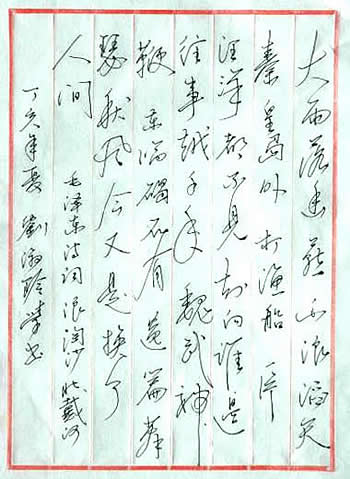 大雨落幽燕 白浪滔天
秦皇岛外 打渔船 一片
汪洋都不见 知向谁边
往事越千年 魏武挥
鞭 东临碣石有遗篇 萧
瑟秋风今又是换了
人间 毛泽东诗词浪淘沙北戴河
丁亥年夏 劉玲学书